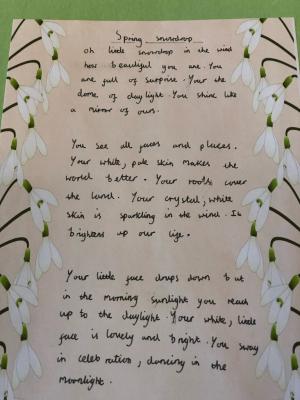 Spring snowdrop
oh little snowdrop in the wind
how beautiful you are. You
are full of surprise. Your the
dome of daylight. You shine like
a mirror of ours.
You see all faces and places.
Your white, pale skin makes the
world better. Your roots cover
the land. Your crystal, white
skin is sparkling in the wind. It
brightens up our life.
Your little face drops down but
in the morning sunlight you reach
up to the daylight. Your white, little
face is lovely and bright. You sway
in celebration, dancing in the
moonlight.